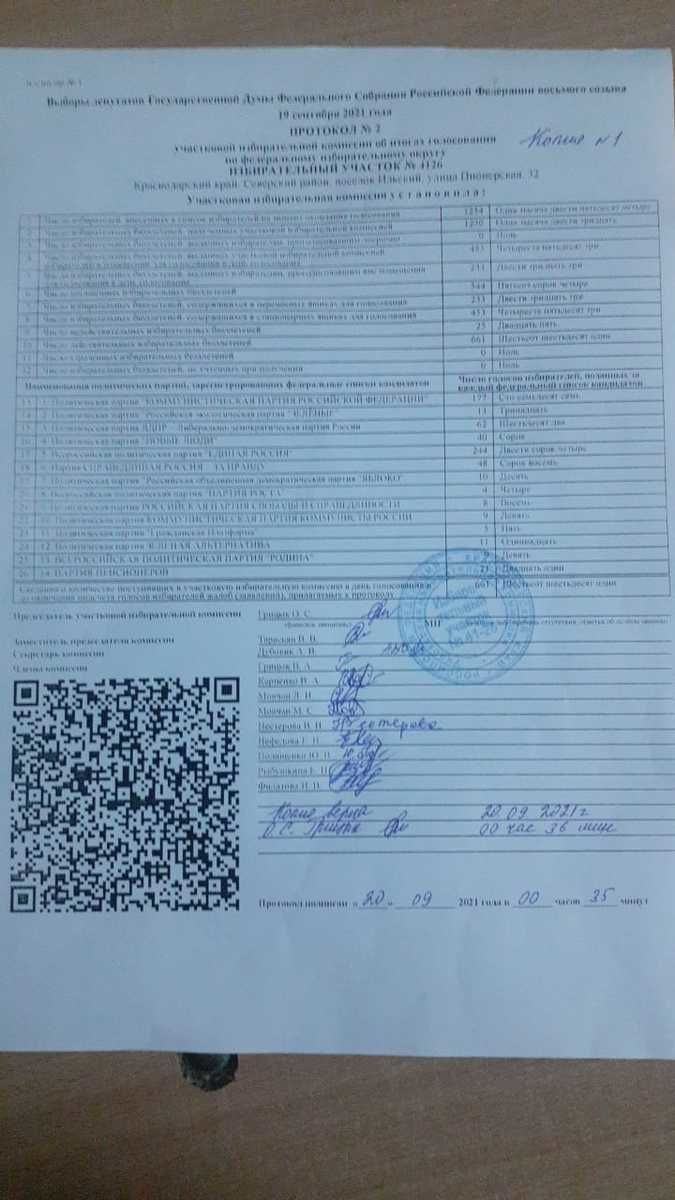 Выборы депутатов Государственной Думы Федерального Собрания Российской Федерации восьмого созыва
19 сентября 2021 года
ПРОТОКОЛ № 2
Копия №1
участковой избирательной комиссии об итогах голосования
по федеральному избирательному округу
ИЗБИРАТЕЛЬНЫЙ УЧАСТОК № 4126
Краснодарский край, Северский район, поселок Ильский, улица Пионерская, 32
Участковая избирательная комиссия установила:
1 Число избирателей, внесенных в список избирателей на момент окончания голосования 1254 Одна тысяча двести пятьдесят четыре
2 Число избирательных бюллетеней, полученных участковой избирательной комиссией 1230 Одна тысяча двести тридцать
3 Число избирательных бюллетеней, выданных избирателям, проголосовавшим досрочно 0 Ноль
4 Число избирательных бюллетеней, выданных участковой избирательной комиссией избирателям в помещении для голосования в день голосования 453 Четыреста пятьдесят три
5 Число избирательных бюллетеней, выданных избирателям, проголосовавшим вне помещения для голосования в день голосования 233 Двести тридцать три
6 Число погашенных избирательных бюллетеней 544 Пятьсот сорок четыре
7 Число избирательных бюллетеней, содержащихся в переносных ящиках для голосования 233 Двести тридцать три
8 Число избирательных бюллетеней, содержащихся в стационарных ящиках для голосования 453 Четыреста пятьдесят три
9 Число недействительных избирательных бюллетеней 25 Двадцать пять
10 Число действительных избирательных бюллетеней 661 Шестьсот шестьдесят один
11 Число утраченных избирательных бюллетеней 0 Ноль
12 Число избирательных бюллетеней, не учтенных при получении 0 Ноль
Наименования политических партий, зарегистрировавших федеральные списки кандидатов Число голосов избирателей, поданных за каждый федеральный список кандидатов
13 1. Политическая партия "КОММУНИСТИЧЕСКАЯ ПАРТИЯ РОССИЙСКОЙ ФЕДЕРАЦИИ" 177 Сто семьдесят семь
14 2. Политическая партия "Российская экологическая партия "ЗЕЛЁНЫЕ" 13 Тринадцать
15 3. Политическая партия ЛДПР - Либерально-демократическая партия России 62 Шестьдесят два
16 4. Политическая партия "НОВЫЕ ЛЮДИ" 40 Сорок
17 5. Всероссийская политическая партия "ЕДИНАЯ РОССИЯ" 244 Двести сорок четыре
18 6. Партия СПРАВЕДЛИВАЯ РОССИЯ - ЗА ПРАВДУ 48 Сорок восемь
19 7. Политическая партия "Российская объединенная демократическая партия "ЯБЛОКО" 10 Десять
20 8. Всероссийская политическая партия "ПАРТИЯ РОСТА" 4 Четыре
21 9. Политическая партия РОССИЙСКАЯ ПАРТИЯ СВОБОДЫ И СПРАВЕДЛИВОСТИ 8 Восемь
22 10. Политическая партия КОММУНИСТИЧЕСКАЯ ПАРТИЯ КОММУНИСТЫ РОССИИ 9 Девять
23 11. Политическая партия "Гражданская Платформа" 5 Пять
24 12. Политическая партия ЗЕЛЕНАЯ АЛЬТЕРНАТИВА 11 Одиннадцать
25 13. ВСЕРОССИЙСКАЯ ПОЛИТИЧЕСКАЯ ПАРТИЯ "РОДИНА" 9 Девять
26 14. ПАРТИЯ ПЕНСИОНЕРОВ 21 Двадцать один
Сведения о количестве поступивших в участковую избирательную комиссию в день голосования и до окончания подсчета голосов избирателей жалоб (заявлений), прилагаемых к протоколу 661 Шестьсот шестьдесят один
Председатель участковой избирательной комиссии Грицюк О. С.
МП
Заместитель председателя комиссии Тараскан В. В.
Секретарь комиссии Дубовик А. В.
Члены комиссии Грицюк В. А.
Карпенко В. А.
Мовчан Л. Н.
Мовчан М. С.
Нестерова В. Н. Нестерова
Нефедова Г. П.
Полищенко Ю. В.
Рябушкина Е. Н.
Филатова И. Н.
Копия верна 20.09.2021г
О.С. Грицюк 00 час 36 мин
Протокол подписан «20» 09 2021 года в 00 часов 35 минут